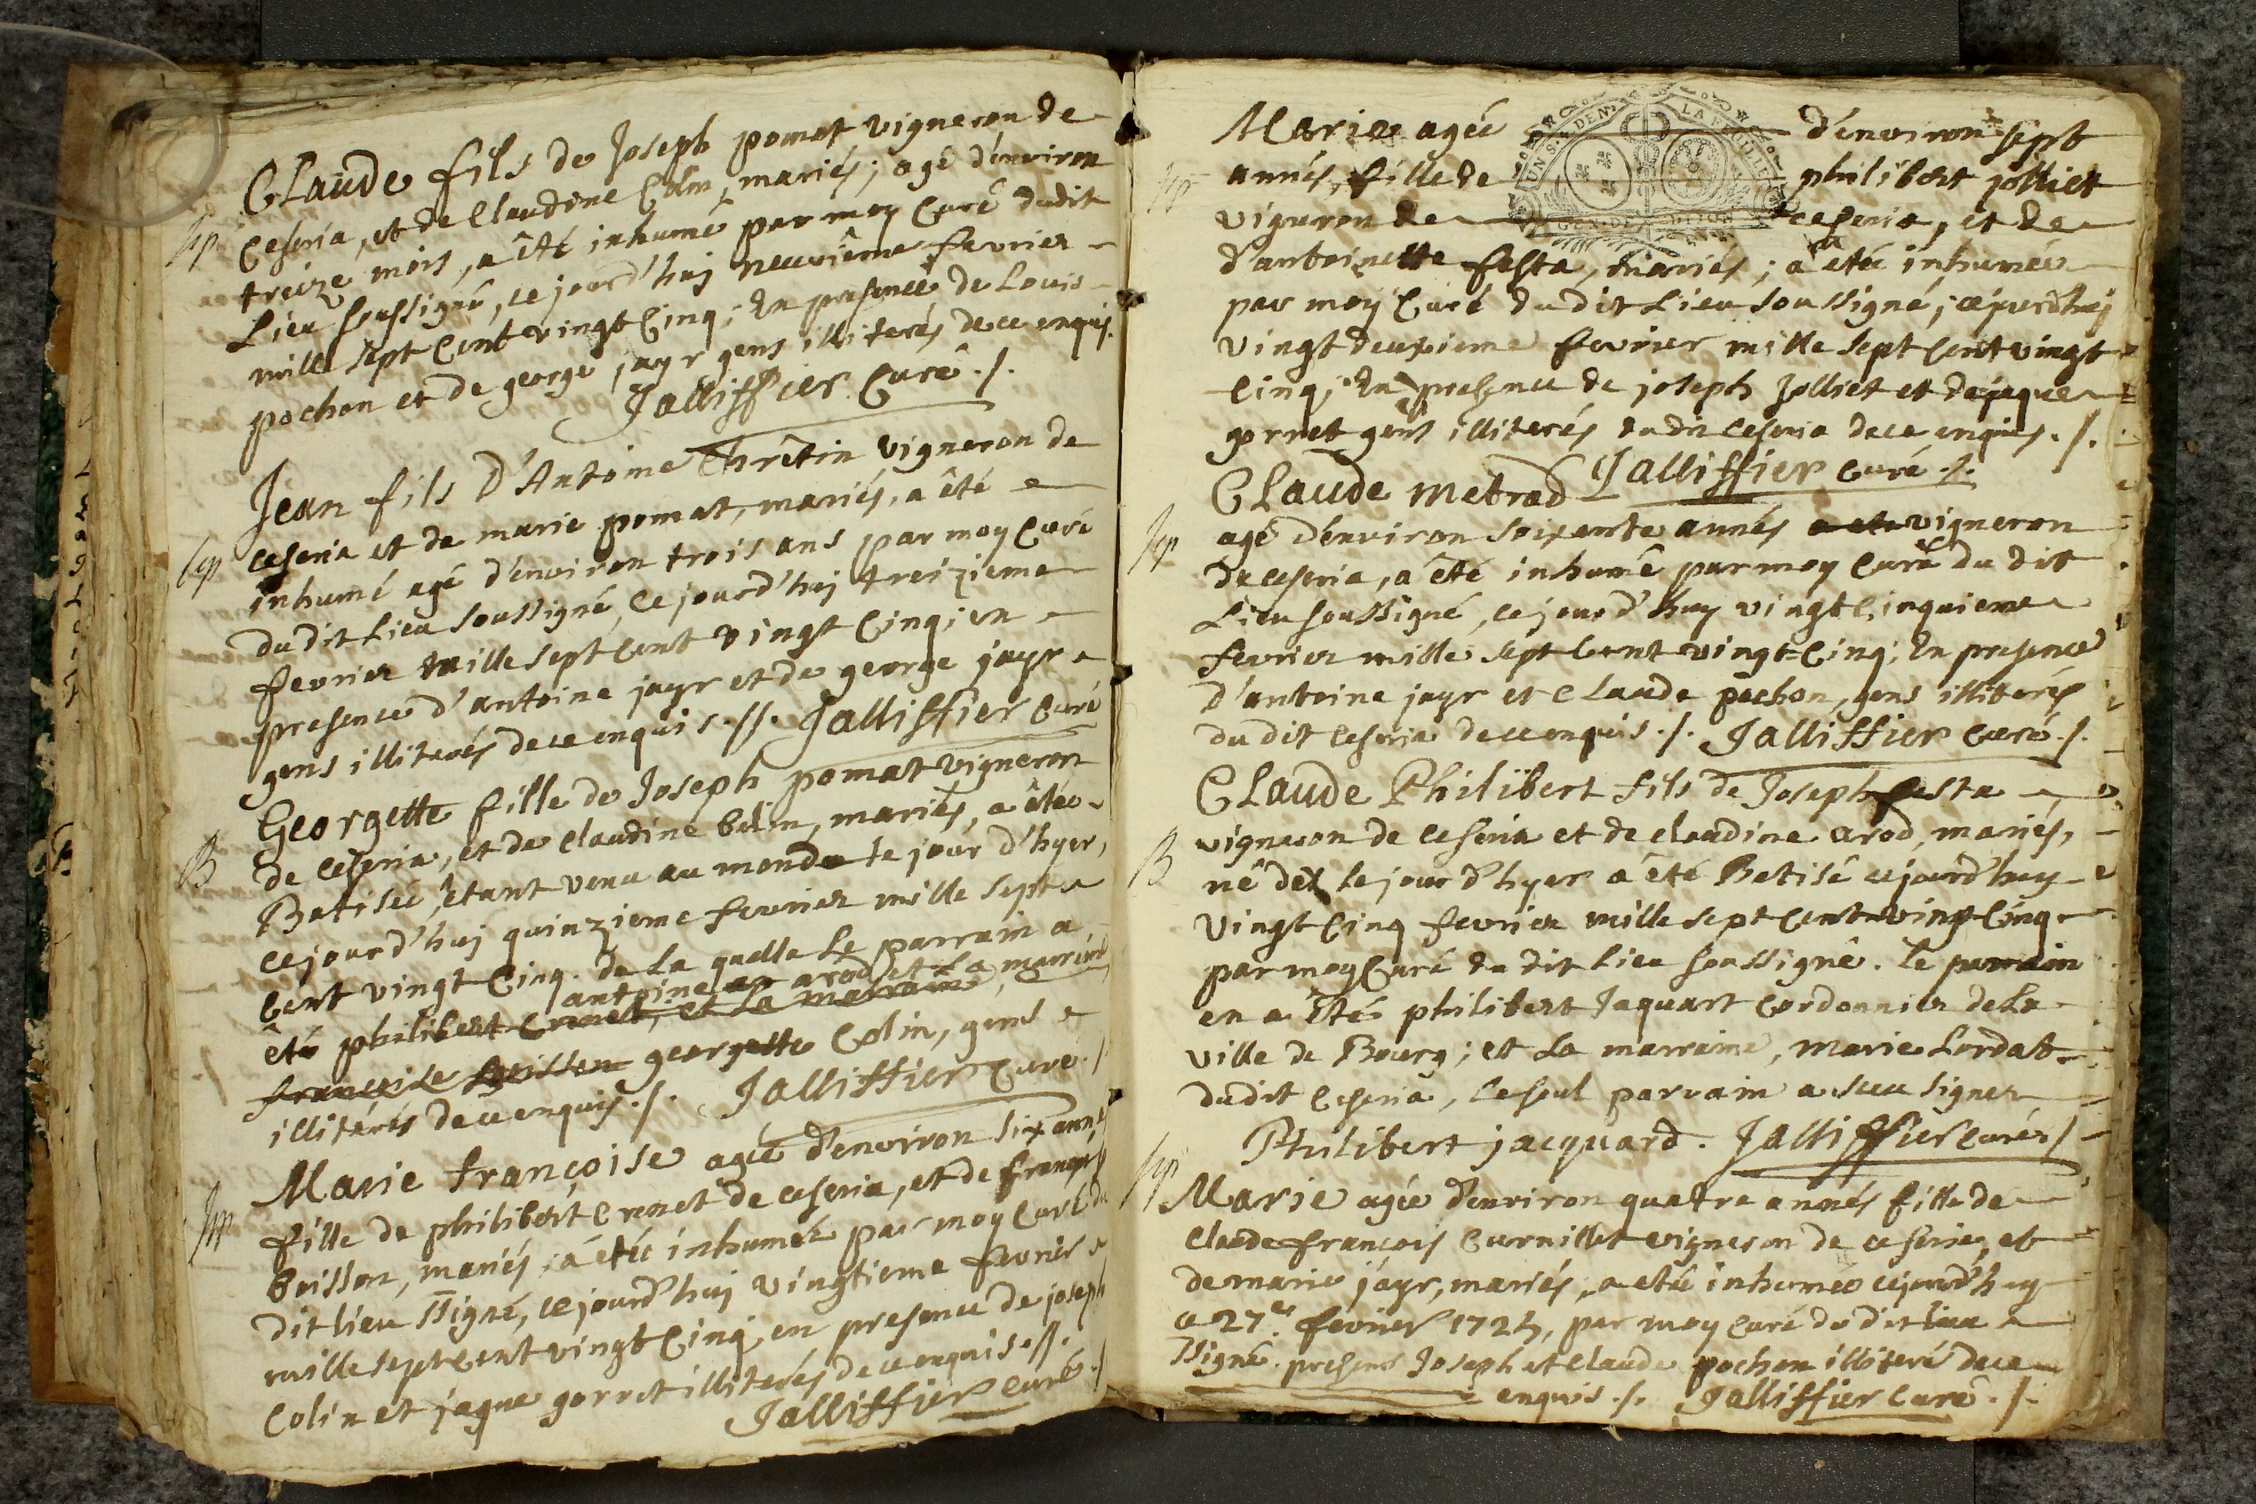 Claude fils de Joseph pomat vigneron de
Sep
Ceseria, et de Claudine Colin, mariés; agé d'environ
treize mois, a êté inhumé par moy Curé dudit
Lieu soussigné, ce jourd'huj neuvième fevrier
mille sept Cent vingt Cinq; En presence de Louis
pochon et de george jayr gens illiterés de ce enquis.
Jalliffier Curé ./.
Jean fils D'Antoine Chrêtin vigneron de
Sep
Ceseria et de marie pomat, mariés, a êté
inhumé agé d'environ trois ans par moy Curé
du dit Lieu soussigné, ce jourd'huj treizieme
fevrier mille sept Cent vingt Cinq; en
presence d'antoine jayr et de george jayr
gens illiterés de ce enquis .//. Jalliffier Curé
Georgette fille de Joseph pomat vigneron
B
de Ceseria, et de Claudine Colin, mariés, a êtée
Batisée, êtant venu au monde le jour d'hyer,
ce jourd'huj quinzieme fevrier mille sept
Cent vingt Cinq. de La quelle Le parrain a
antoine arod et La marraine
êté philibert Crenet, et La marraine,
françoise buisson georgette Colin, gens
illiterés de ce enquis ./. Jalliffier Curé ./
Marie françoise agée d'environ six annés
Sep
fille de philibert Crenet de Ceseria, et de françoise
buisson, mariés; a êtée inhumée par moy Curé du
dit lieu ssigné, ce jourd'huj vingtieme fevrier
mille sept Cent vingt Cinq, en presence de joseph
Colin et jaque gorret illiterés de ce enquis .//.
Jalliffier Curé ./
Marie agée d'environ sept
Sep
annés, fille de philibert jolliet
vigneron de Ceseria, et de
d'antoinette festa, mariés; a êtée inhumée
par moy Curé du dit Lieu soussigné; ce jourd'huj
vingt deuxieme fevrier mille sept Cent vingt
Cinq; En presence de joseph Jolliet et de jaque
gorret gens illiterés du dit Ceseria de ce enquis ./.
Claude metrad Jalliffier Curé ./.
Sep
agé d'environ soixente annés a eté vigneron
de Ceseria, a êté inhumé par moy Curé du dit
Lieu soussigné, ce jourd'huy vingt Cinquieme
fevrier mille sept Cent vingt=Cinq; En presence
d'antoine jayr et Claude pochon, gens illiterés
du dit Ceseria de ce enquis ./. Jalliffier Curé ./.
Claude Philibert fils de Joseph festa
vigneron de Ceseria et de claudine arod, mariés,
B
né le jour d'hyer a êté Batisé ce jourd'huy
vingt Cinq fevrier mille sept Cent vingt Cinq
par moy Curé du dit Lieu soussigné. Le parrain
en a êté philibert Jaquart Cordonnier de La
ville de Bourg; et La marraine, marie Lordat
du dit Ceseria, Le seul parrain a sceu signer
Philibert jacquard. Jalliffier Curé ./
Sep
Marie agée d'environ quatre annés fille de
Claude françois Curnillet vigneron de Ceserie, et
de marie jayr, mariés, a etée inhumée ce jourd'huy
ce 27.e fevrier 1725, par moy Curé du dit lieu
ssigné. presens Joseph et Claude pochon illiterés de ce
enquis ./. Jalliffier Curé ./.